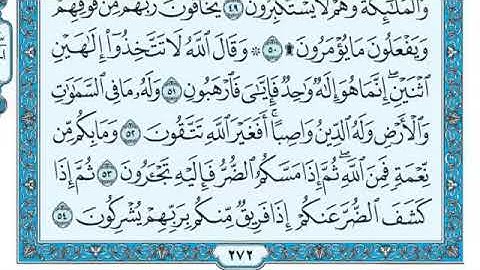 وَٱلْمَلَٰٓئِكَةُ وَهُمْ لَا يَسْتَكْبِرُونَ ٤٩ يَخَافُونَ رَبَّهُم مِّن فَوْقِهِمْ
وَيَفْعَلُونَ مَا يُؤْمَرُونَ ۩ ٥٠ ۞ وَقَالَ ٱللَّهُ لَا تَتَّخِذُوٓا۟ إِلَٰهَيْنِ
ٱثْنَيْنِ ۖ إِنَّمَا هُوَ إِلَٰهٌ وَٰحِدٌ فَإِيَّٰىَ فَٱرْهَبُونِ ٥١ وَلَهُۥ مَا فِى ٱلسَّمَٰوَٰتِ
وَٱلْأَرْضِ وَلَهُ ٱلدِّينُ وَاصِبًا ۚ أَفَغَيْرَ ٱللَّهِ تَتَّقُونَ ٥٢ وَمَا بِكُم مِّن
نِّعْمَةٍ فَمِنَ ٱللَّهِ ۖ ثُمَّ إِذَا مَسَّكُمُ ٱلضُّرُّ فَإِلَيْهِ تَجْـَٔرُونَ ٥٣ ثُمَّ إِذَا
كَشَفَ ٱلضُّرَّ عَنكُمْ إِذَا فَرِيقٌ مِّنكُم بِرَبِّهِمْ يُشْرِكُونَ ٥٤
٢٧٢